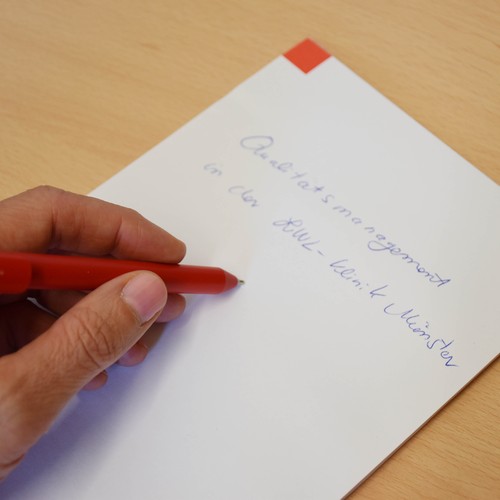 Qualitätsmanagement
in der LWL-Klinik Münster